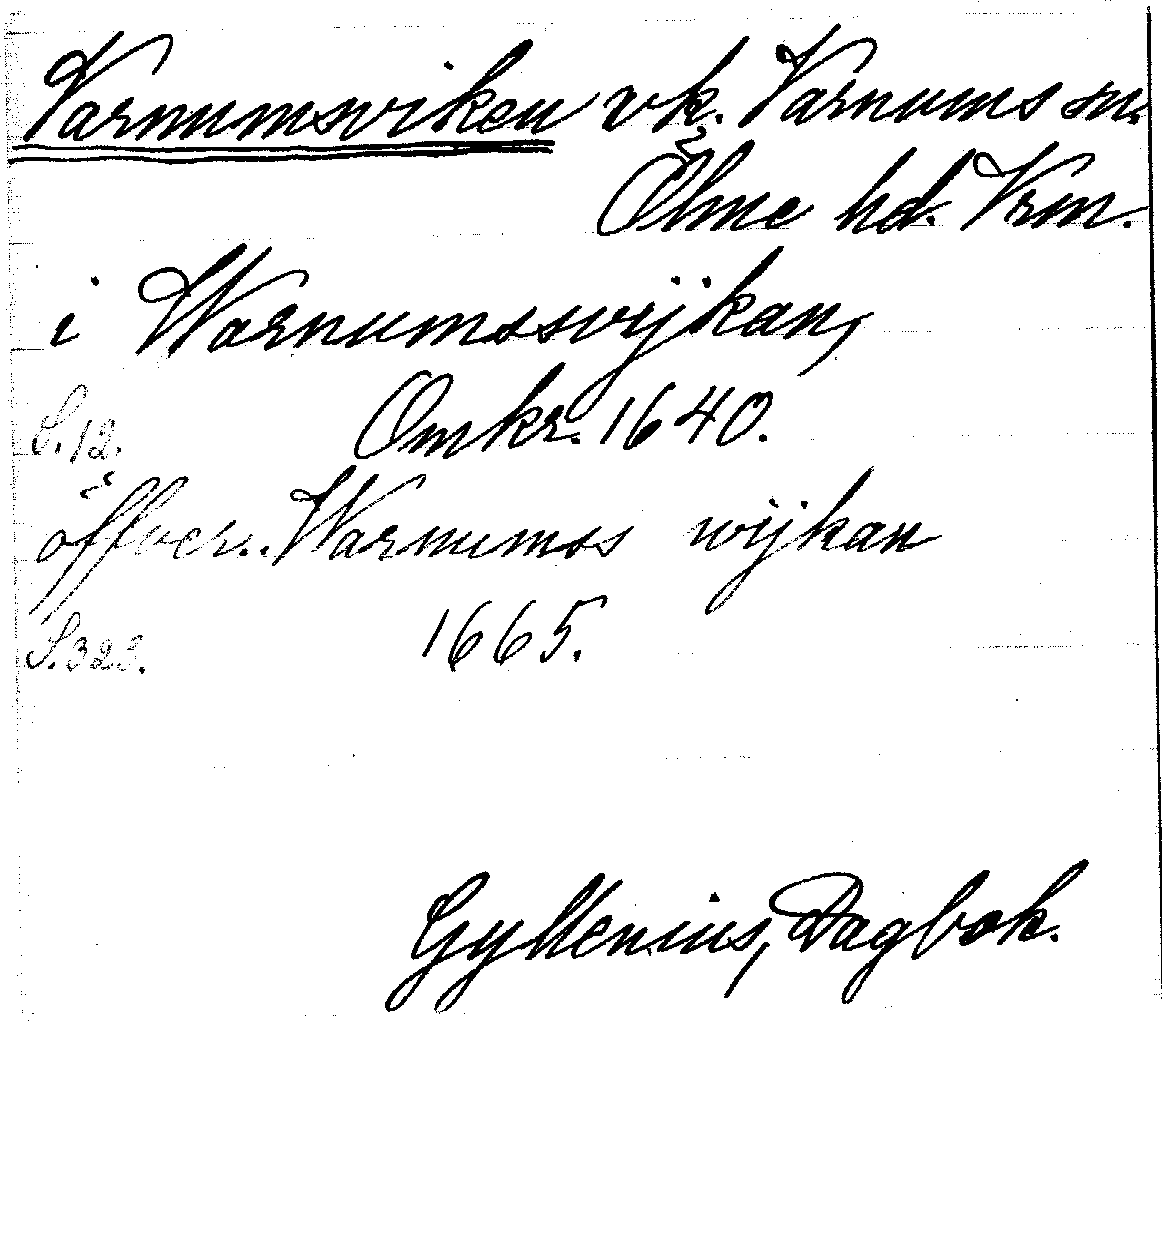 Varnumsviken vk. Varnums sn.
Ölme hd. Vrm.
i Warnumsswijkan,
S.12. Omkr. 1640.
öffver.. Warnumss wijkan
S.323. 1665.
Gyllenius, Dagbok.